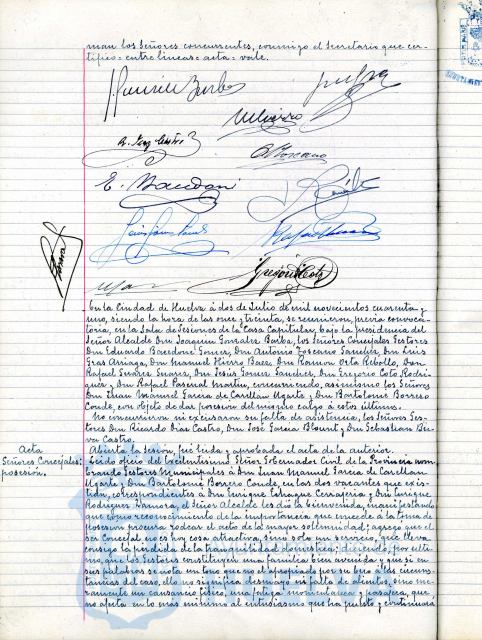 man los Señores concurrentes, conmigo el Secretario que cer-
tifico = entre lineas = acta = vale.
E. Bacedoni
Gregorio Coto
En la Ciudad de Huelva á dos de Julio de mil novecientos cuarenta y
uno, siendo la hora de las once y treinta, se reunieron, previa convoca-
toria, en la Sala de Sesiones de la Casa Capitular, bajo la presidencia del
Señor Alcalde Don Joaquin Gonzalez Barba, los Señores Concejales Gestores
Don Eduardo Bacedoni Gomez, Don Antonio Toscano Sanchez, Don Luis
Gras Arriaga, Don Manuel Hierro Baez, Don Ramon Orta Rebollo, Don
Rafael Suarez Suarez, Don Jesus Gomez Sanchez, Don Gregorio Coto Rodri-
guez y Don Rafael Pascual Martin, concurriendo, asimismo los Señores
Don Juan Manuel Garcia de Carellan Ugarte y Don Bartolomé Borrero
Conde, con objeto de dar posesion del mismo cargo á estos últimos.
No concurrieron ni excusaron su falta de asistencia, los Señores Ges-
tores Don Ricardo Diaz Castro, Don José Garcia Blount y Don Sebastian
Castro.
Acta
Abierta la sesion, fué leida y aprobada el acta de la anterior.
Señores Concejales:
posesión.
Leido oficio del Excelentisimo Señor Gobernador Civil de la Provincia nom-
brando Gestores Municipales á Don Juan Manuel Garcia de Carellan
Ugarte y Don Bartolomé Borrero Conde, en las dos vacantes que exis-
tian, correspondientes á Don Enrique y Don Enrique
Rodriguez Zamora, el Señor Alcalde les dió la bienvenida, manifestando
que como reconocimiento de la importancia que concede á la toma de
posesion procura rodear el acto de la mayor solemnidad; agregó que el
ser Concejal no es hoy cosa atractiva, sino solo un servicio, que lleva
consigo la pérdida de la tranquilidad doméstica; diciendo, por ulti-
mo, que los Gestores constituyen una familia bien avenida y que si en
sus palabras se nota un tono que no es el apropiado por su brio á las circuns-
tancias del caso, ello no significa desmayo ni falta de alientos, sino me-
ramente un cansancio fisico, una fatiga momentanea y pasajera, que
no afecta en lo mas minimo al entusiasmo que ha puesto y continuará